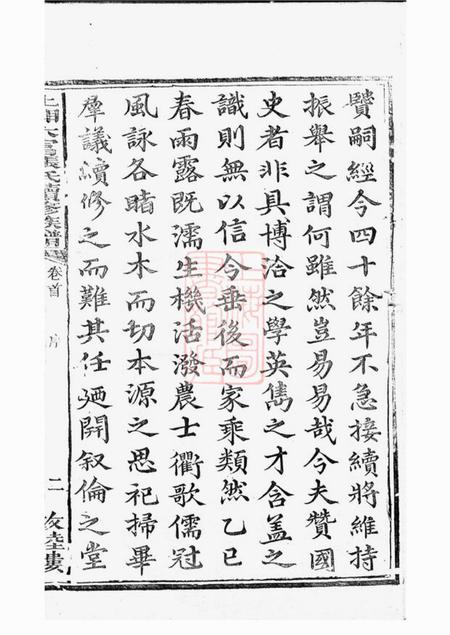 贒嗣經今四十餘年不急接續將維持
振舉之謂何雖然豈易易哉今夫贊國
史者非具博洽之學英雋之才含盖之
識則無以信今垂後而家乘類然乙巳
春雨露既濡生機活潑農士衢歌儒冠
風詠各睹水木而切本源之思祀掃畢
羣議續修之而難其任廼開叙倫之堂
氏續修族譜 卷首 序 二 友陸樓